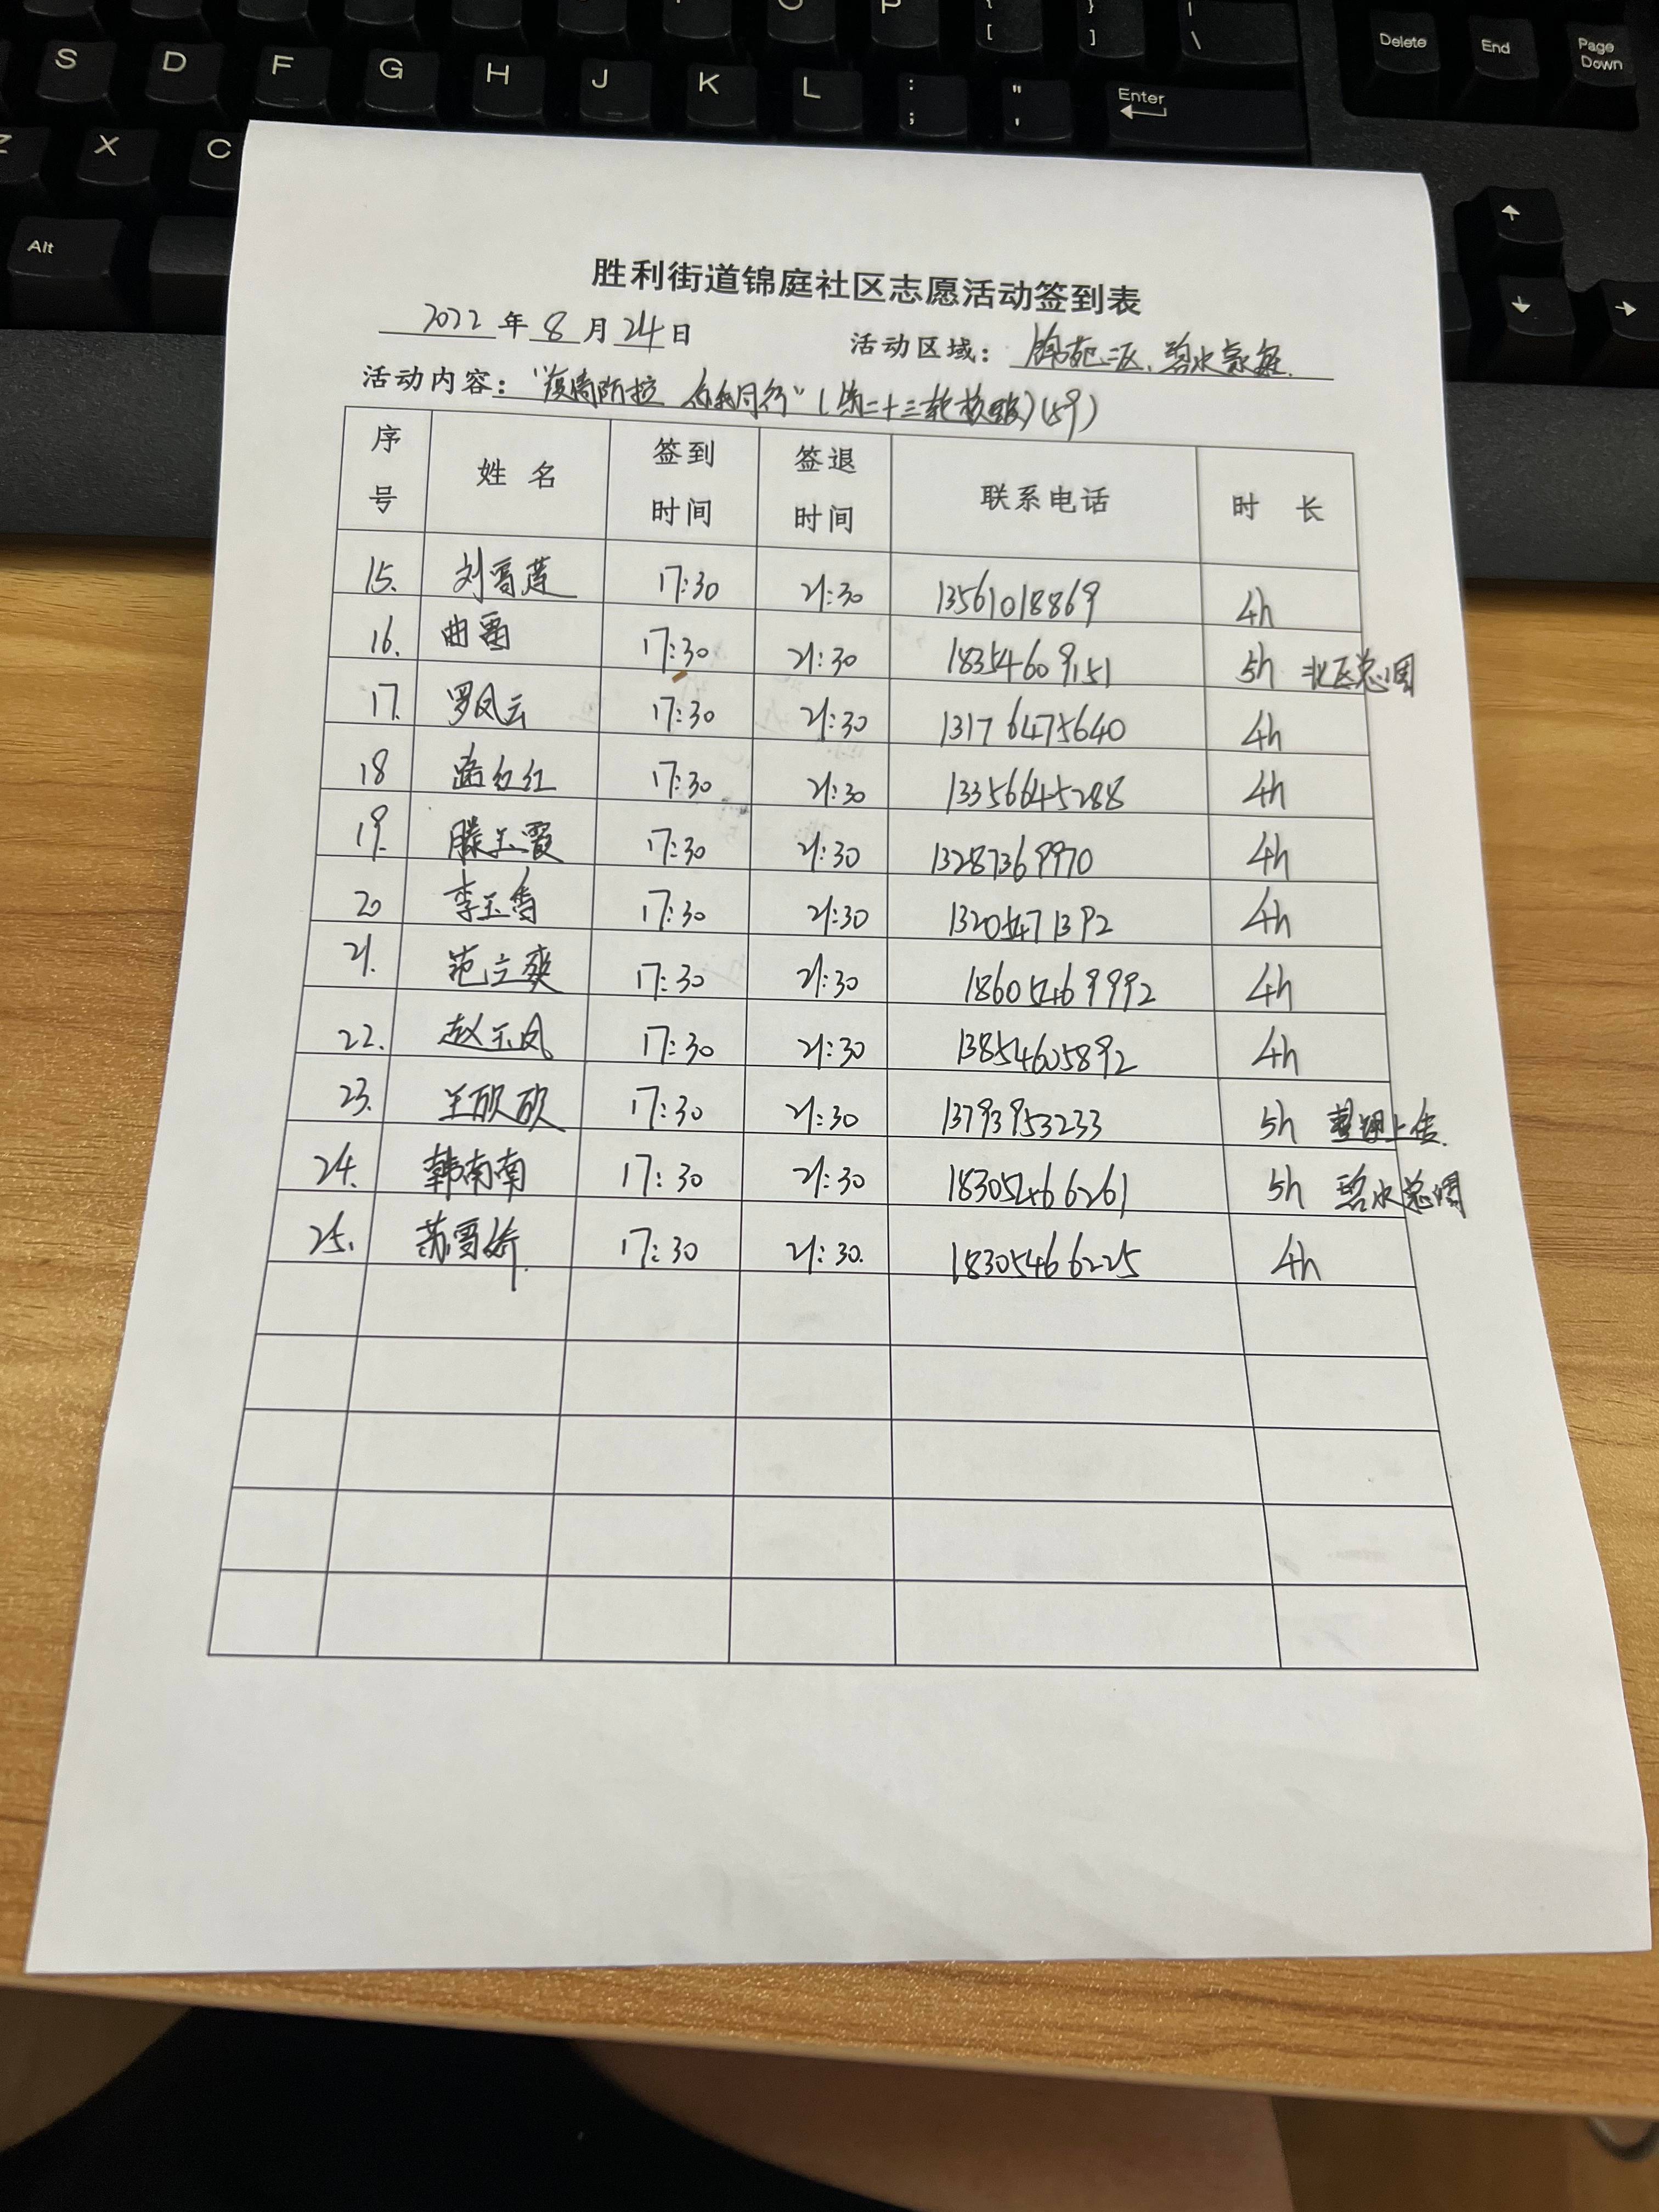 S D F G H J K L : ; " ' Enter
P { [ } ] | \ Delete End Page Down
Z X C
Alt
胜利街道锦庭社区志愿活动签到表
2022年8月24日 活动区域:锦苑二区、碧水豪庭.
活动内容:"疫情防控 你我同行"(第二十三轮核酸)(5号)
序号 姓名 签到时间 签退时间 联系电话 时长
15. 刘雪莲 17:30 21:30 13561018869 4h
16. 曲雷 17:30 21:30 18354609151 5h 北区总调
17. 罗凤云 17:30 21:30 13176475640 4h
18 路红红 17:30 21:30 13356645288 4h
19. 滕玉霞 17:30 21:30 13287369970 4h
20 李玉香 17:30 21:30 13205471392 4h
21. 范立爽 17:30 21:30 18605469992 4h
22. 赵玉凤 17:30 21:30 13854605892 4h
23. 王欣欣 17:30 21:30 13793953233 5h 整理上传.
24. 韩南南 17:30 21:30 18305466261 5h 碧水总调
25. 苏雪娇. 17:30 21:30. 18305466225 4h